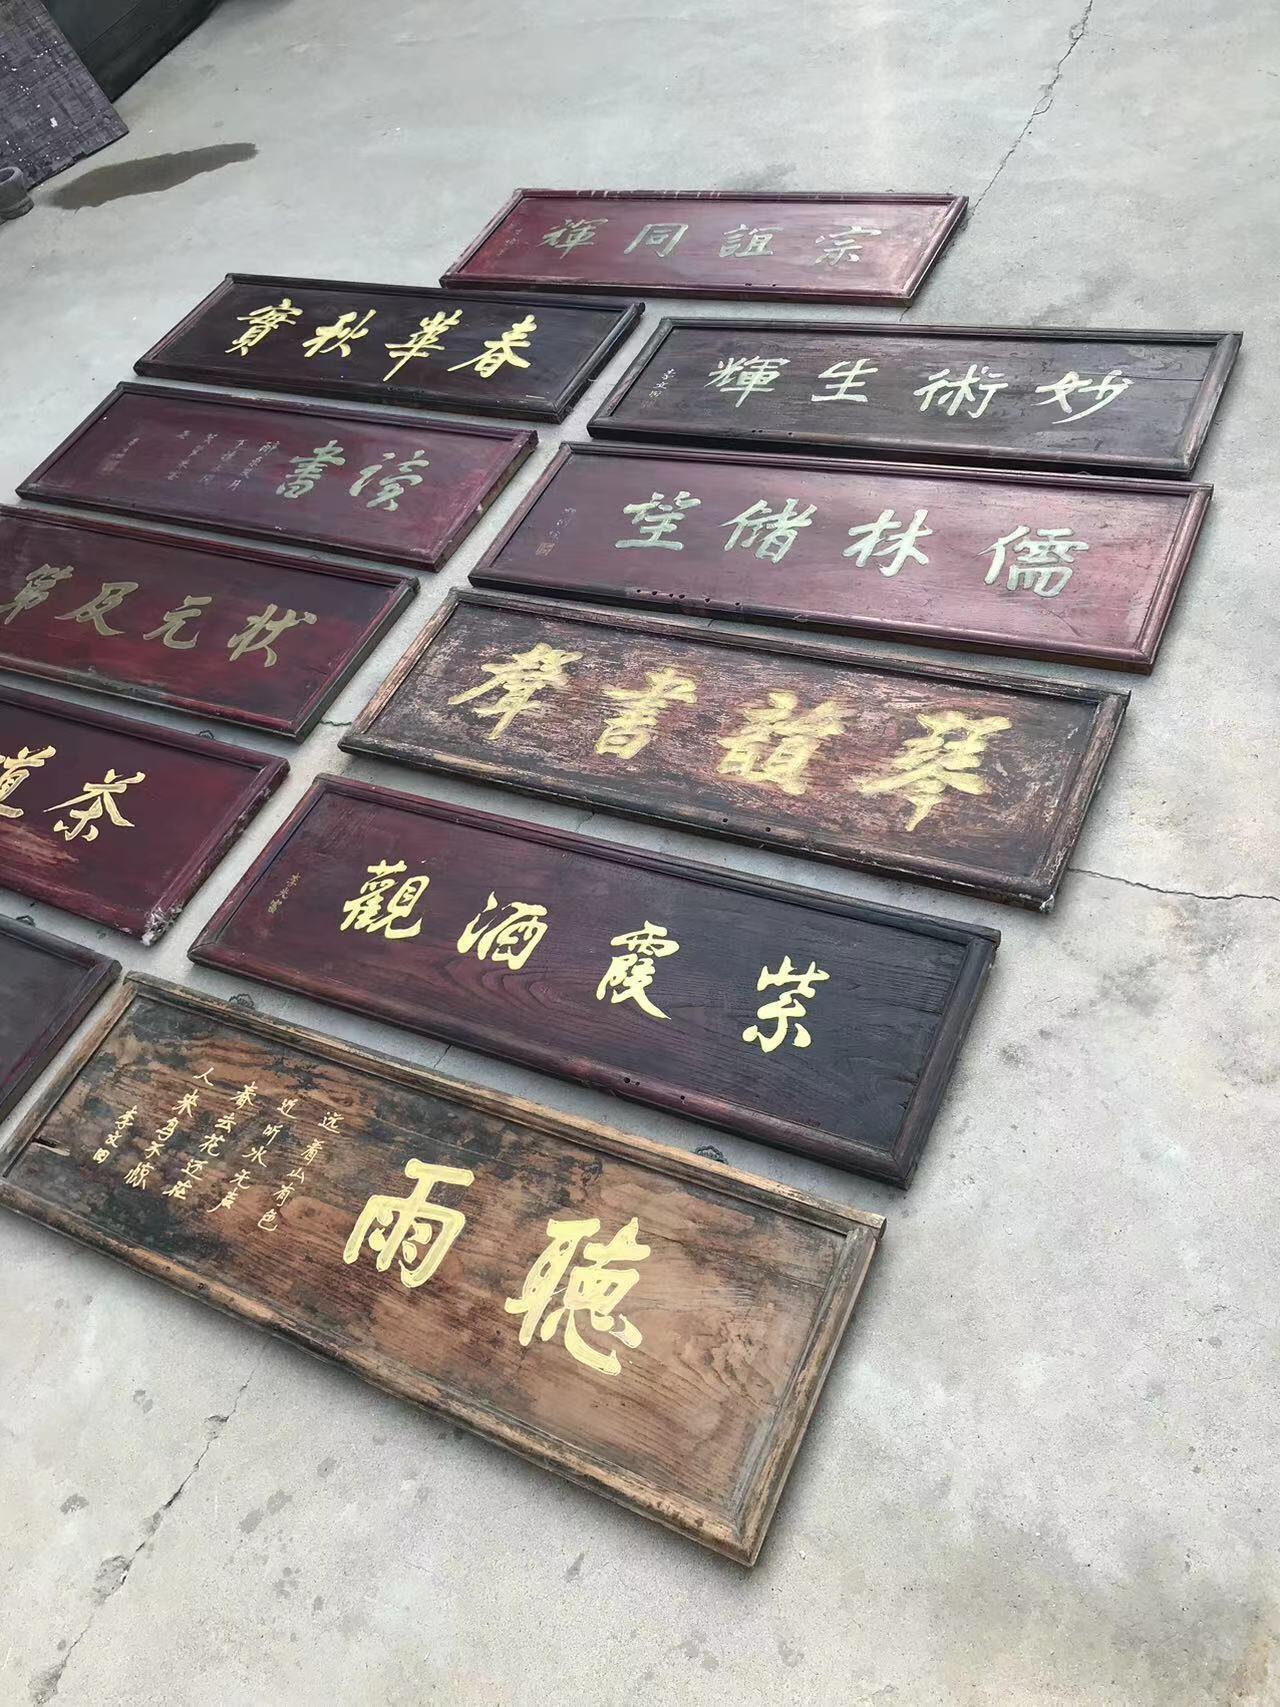 宗誼同輝
春華秋實
妙術生輝
李文田
读書
儒林储望
状元及第
琴韻書聲
茶道
紫霞酒觀
聴雨
远看山有色
近听水无声
春去花还在
人来鸟不惊
李文田